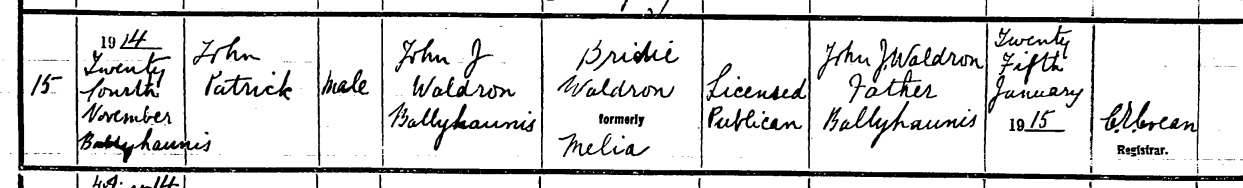 15
1914
Twenty
fourth
November
Ballyhaunis
John
Patrick
Male
John J
Waldron
Ballyhaunis
Bridie
Waldron
formerly
Melia
Licensed
Publican
John J. Waldron
Father
Ballyhaunis
Twenty
Fifth
January
1915
Registrar.